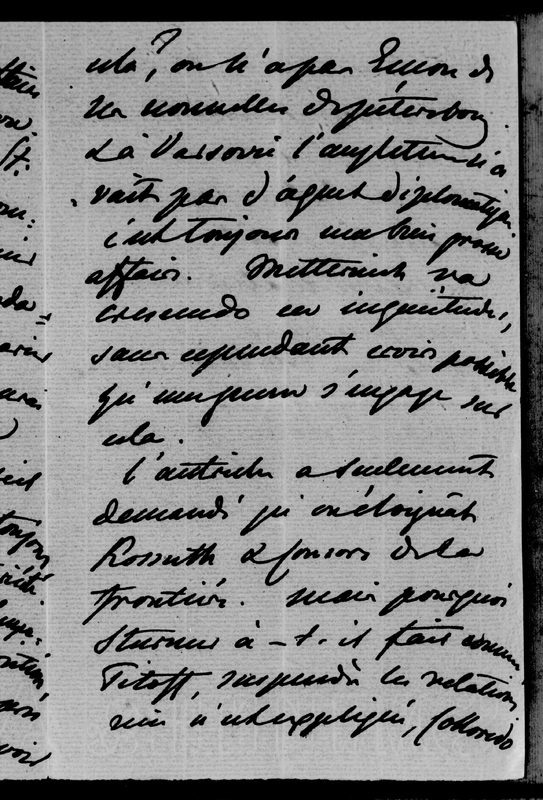 cela ? on n'a pas encore de
nouvelles de Pétersbourg
& à Varsovie l'angleterre n'a
vait pas d'agent diplomatique.
c'est toujours une bien grosse
affaire. Metternich va
crescendo en inquiétudes,
sans cependant croire possible
qu'une guerre s'engage sur
cela.
l'autriche a seulement
demandé qu'on éloignât
Kossuth & consors de la
frontière. mais pourquoi
Sturmer a-t-il fait comme
Titoff, suspendu les relations
rien n'est expliqué, Colloredo